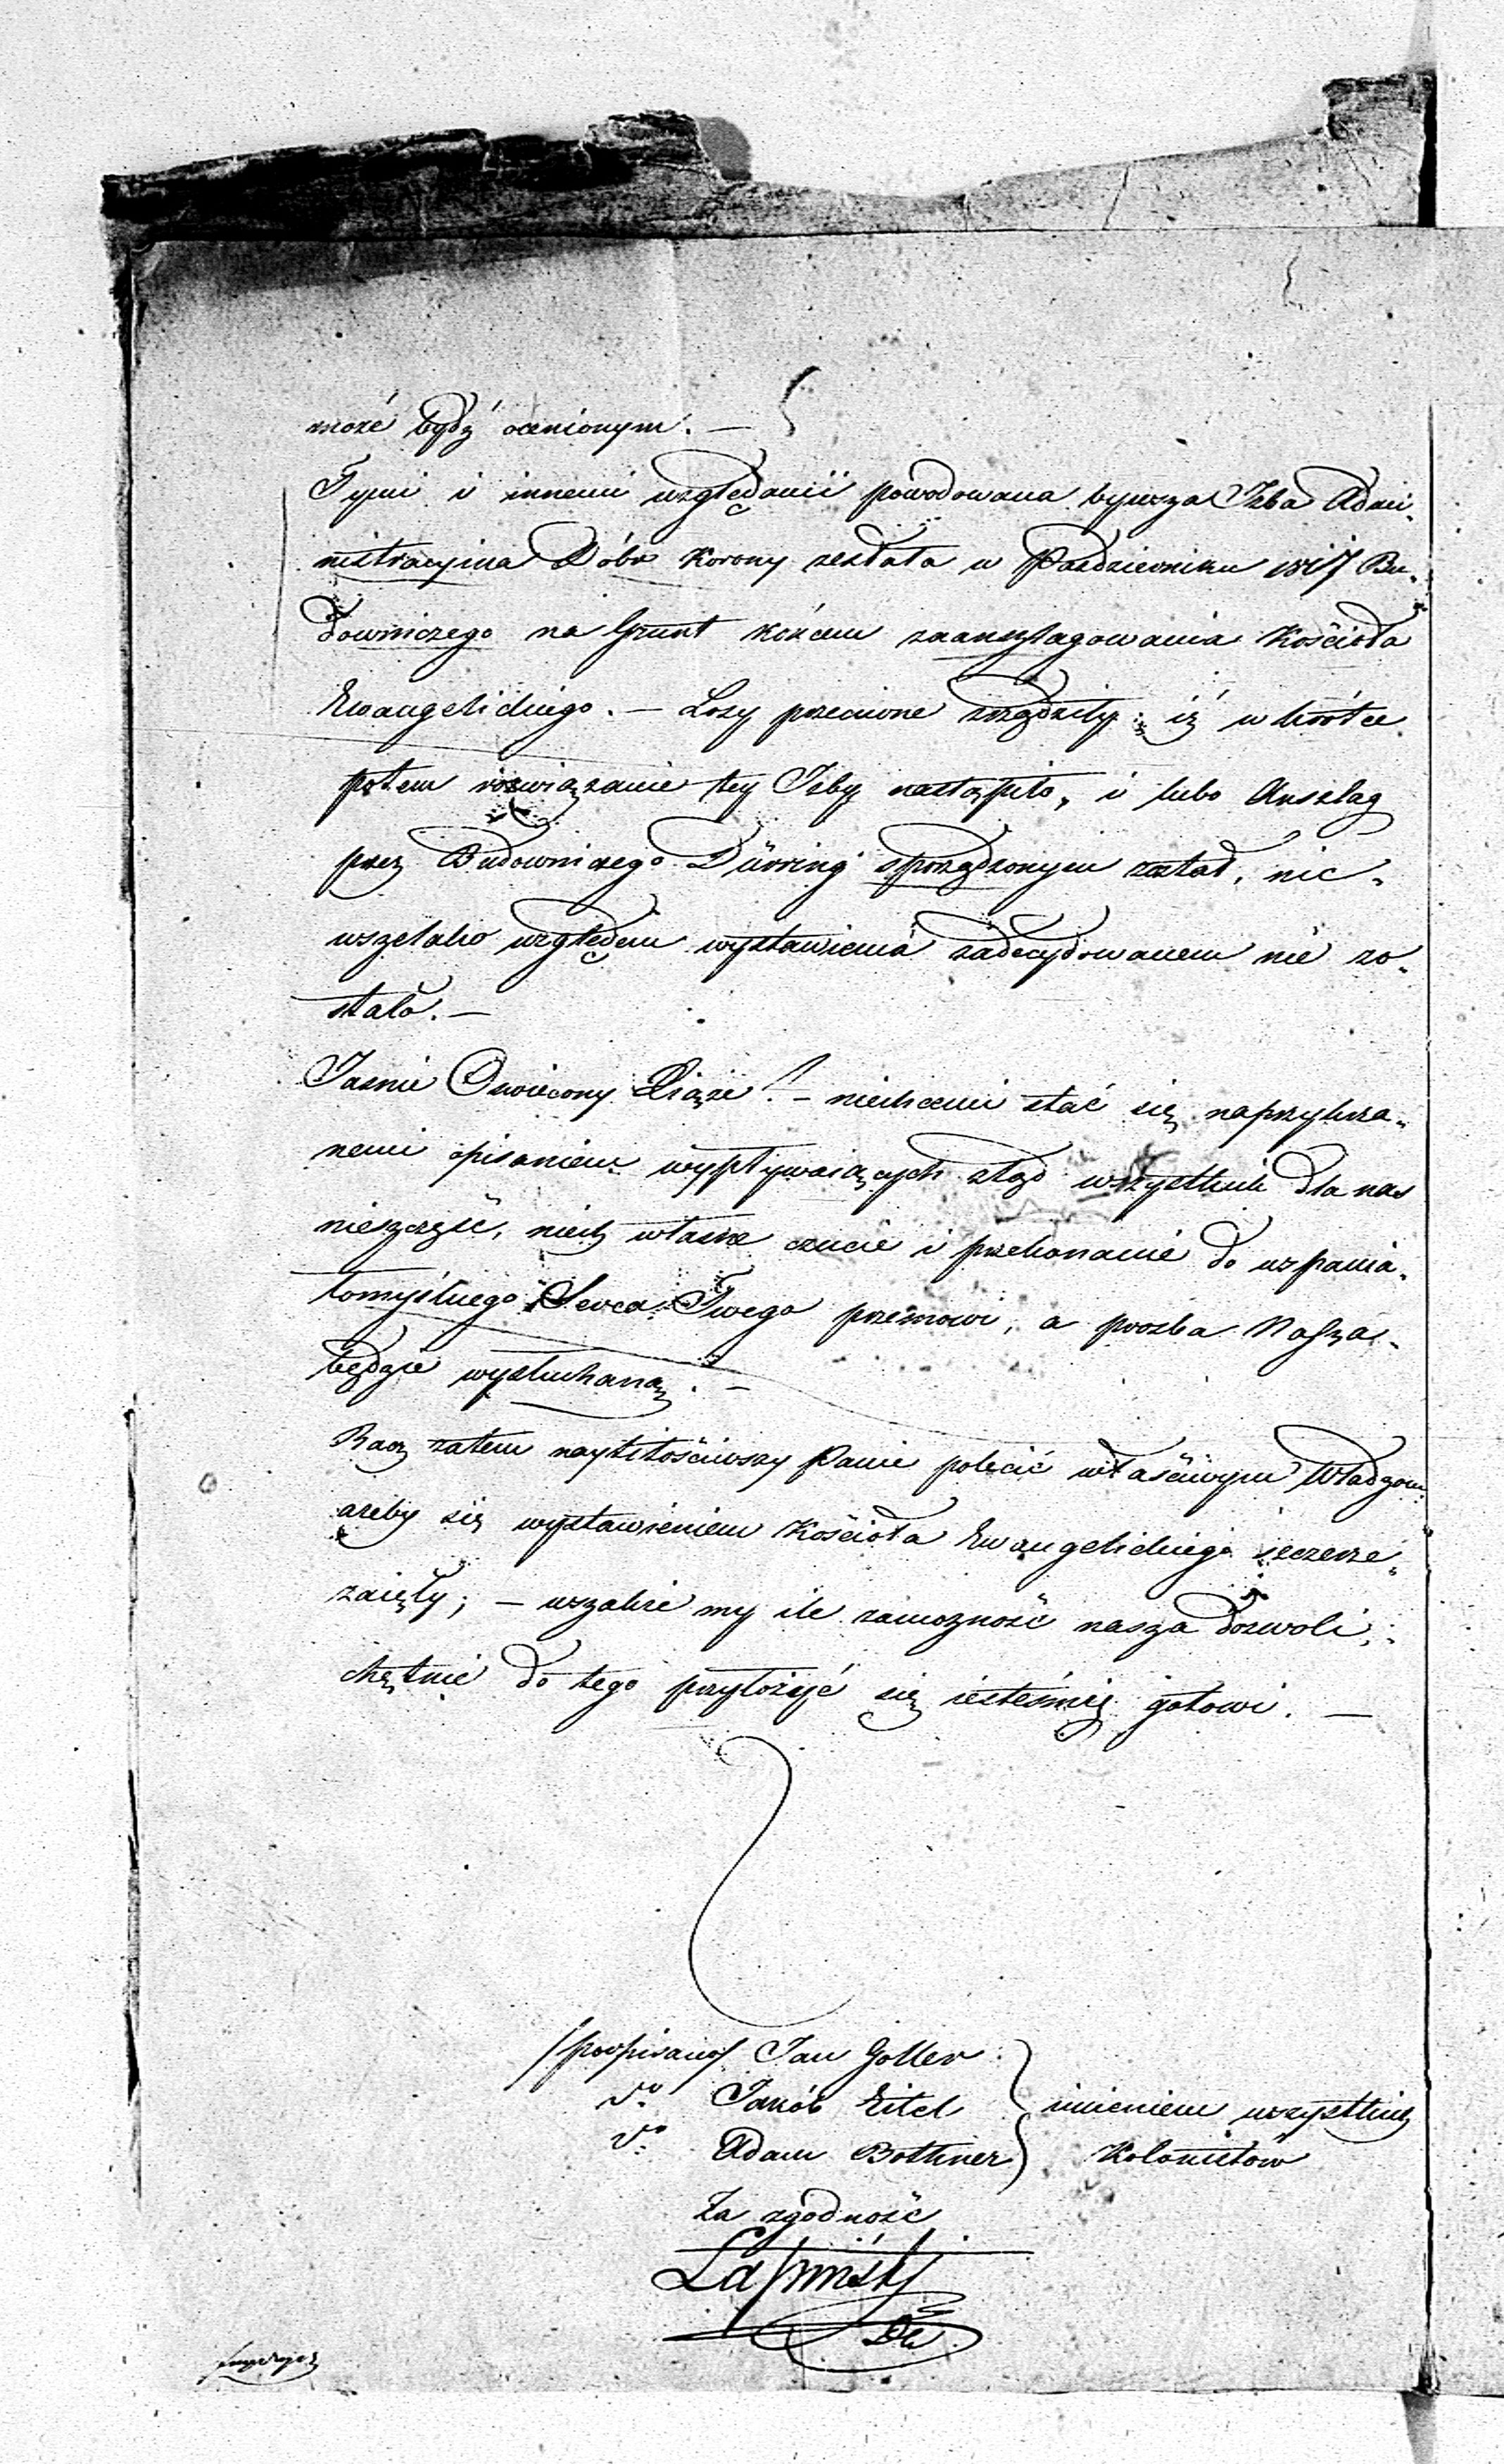 może bydź ocenionym. —
Tymi i innemi względami powodowana bywsza Izba Admi„
nistracyina Dóbr Korony zesłała w Pazdzierniku 1817 Bu„
downiczego na Grunt końcem zaanszlagowania Kościoła
Ewangelickiego. — Losy przeciwne zrządziły, iż wkrótce
potem rozwiązanie tey Izby nastąpiło, i lubo Anszlag
przez Budowniczego Dürring sporządzonym został, nic„
wszelako względem wystawienia zadecydowanem nie zo„
stało. —
Jasnie Oswiecony Xiąże! — niechcemi stać się naprzykrza„
nemi opisaniem wypływaiących ztąd wszystkich dla nas
nieszczęść, niech własne czucie i przekonanie do wspania„
łomyślnego Serca Twego przemowi, a prozba Nasza„
będzie wysłuchaną. —
Racz zatem nayłitościwszy Panie polecić właściwym Władzom
ażeby się wystawieniem Kościoła Ewangelickiego szczerze„
zaięły; — wszakże my ile zamozność nasza dozwoli,
chętnie do tego przyłożyć się iesteśmy gotowi. —
/podpisano/ Jan Goller
do Jakób Eitel imieniem wszystkich
do Adam Bothner Kolonistów
Za zgodność
Łapiński